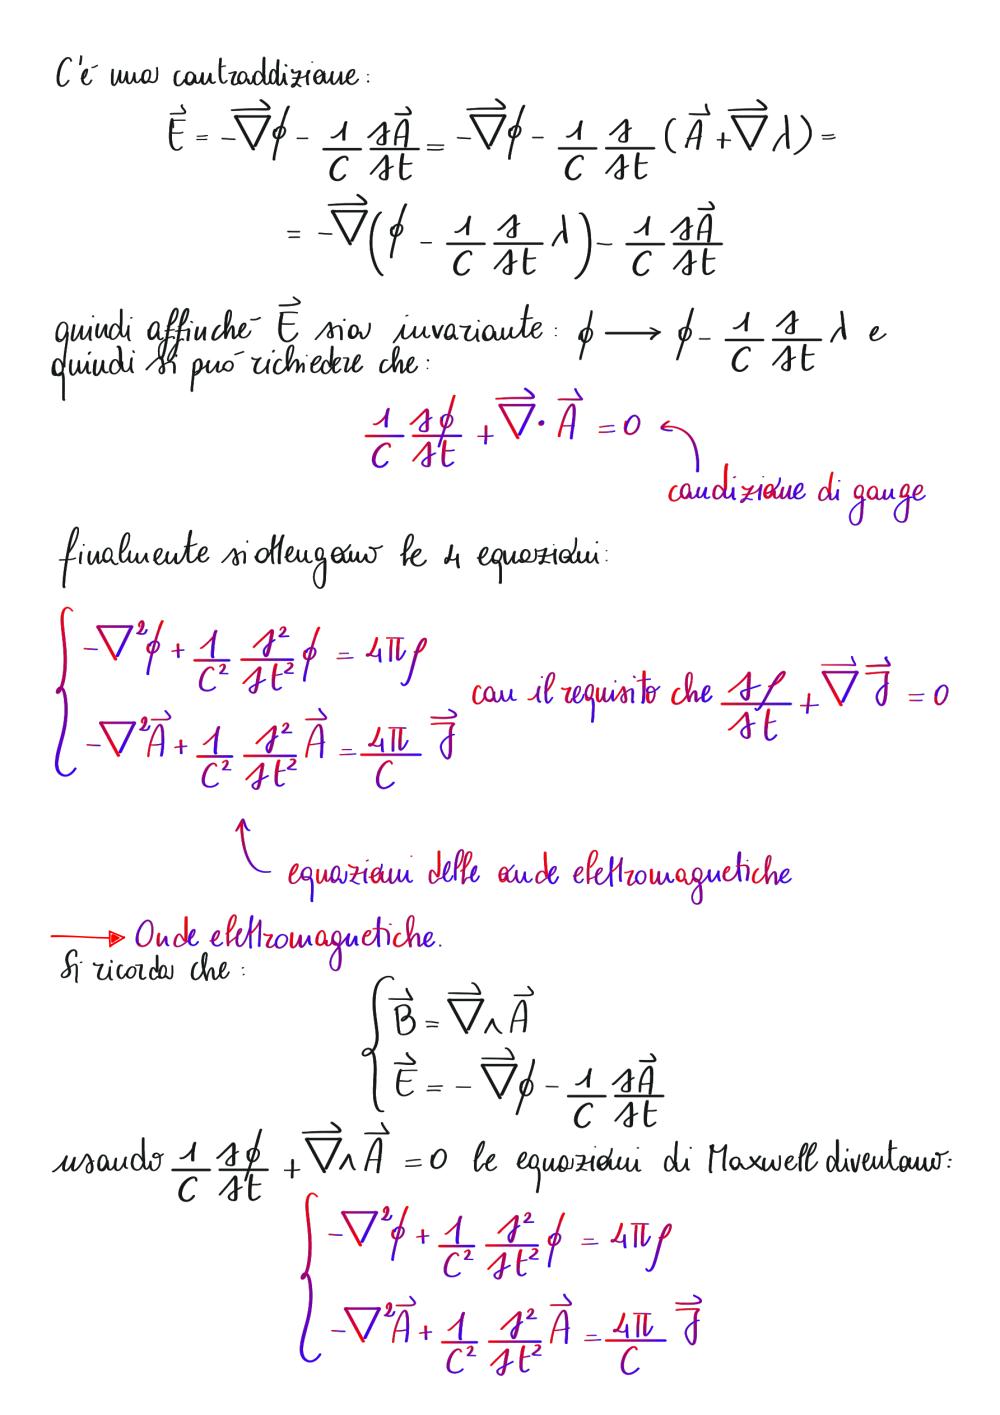 C'é una contraddizione:
$\vec{E} = -\vec{\nabla}\phi - \frac{1}{C}\frac{\partial \vec{A}}{\partial t} = -\vec{\nabla}\phi - \frac{1}{C}\frac{\partial}{\partial t}(\vec{A} + \vec{\nabla}\lambda) =$
$= -\vec{\nabla}\left(\phi - \frac{1}{C}\frac{\partial}{\partial t}\lambda\right) - \frac{1}{C}\frac{\partial \vec{A}}{\partial t}$
quindi affinché $\vec{E}$ sia invariante: $\phi \longrightarrow \phi - \frac{1}{C}\frac{\partial}{\partial t}\lambda$ e
quindi si può richiedere che:
$\frac{1}{C}\frac{\partial \phi}{\partial t} + \vec{\nabla} \cdot \vec{A} = 0$
condizione di gauge
finalmente si ottengono le 4 equazioni:
$-\nabla^2\phi + \frac{1}{C^2}\frac{\partial^2}{\partial t^2}\phi = 4\pi\rho$
con il requisito che $\frac{\partial \rho}{\partial t} + \vec{\nabla}\vec{J} = 0$
$-\nabla^2\vec{A} + \frac{1}{C^2}\frac{\partial^2}{\partial t^2}\vec{A} = \frac{4\pi}{C}\vec{J}$
equazioni delle onde elettromagnetiche
→ Onde elettromagnetiche.
Si ricorda che:
$\vec{B} = \vec{\nabla} \wedge \vec{A}$
$\vec{E} = -\vec{\nabla}\phi - \frac{1}{C}\frac{\partial \vec{A}}{\partial t}$
usando $\frac{1}{C}\frac{\partial \phi}{\partial t} + \vec{\nabla} \wedge \vec{A} = 0$ le equazioni di Maxwell diventano:
$-\nabla^2\phi + \frac{1}{C^2}\frac{\partial^2}{\partial t^2}\phi = 4\pi\rho$
$-\nabla^2\vec{A} + \frac{1}{C^2}\frac{\partial^2}{\partial t^2}\vec{A} = \frac{4\pi}{C}\vec{J}$